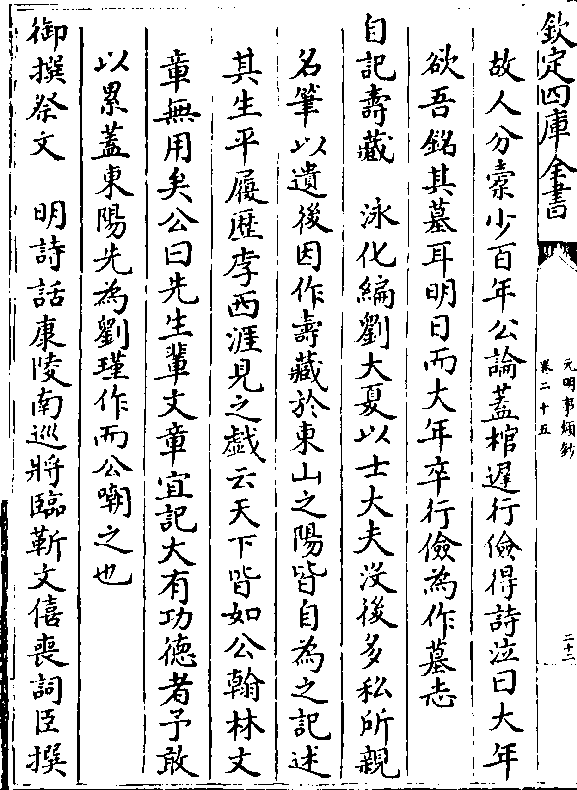 欽定四庫全書
元明事類鈔
卷二十五
二十二
故人分橐少百年公論蓋棺遲行儉得詩泣曰大年
欲吾銘其墓耳明日而大年卒行儉為作墓志
自記壽藏　泳化編劉大夏以士大夫沒後多私所親
名筆以遺後因作壽藏於東山之陽皆自為之記述
其生平履歴李西涯見之戯云天下皆如公翰林文
章無用矣公曰先生輩文章宜記大有功德者予敢
以累蓋東陽先為劉瑾作而公嘲之也
御撰祭文　明詩話康陵南巡將臨靳文僖喪詞臣撰